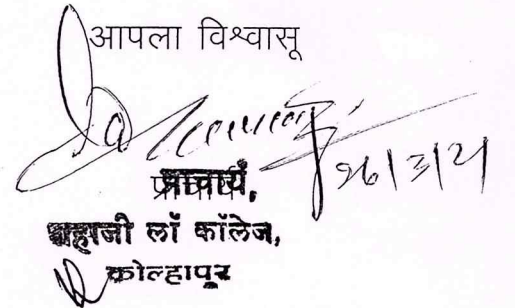 आपला विश्वासू
२६/३/२१
प्राचार्य,
शहाजी लॉ कॉलेज,
कोल्हापूर